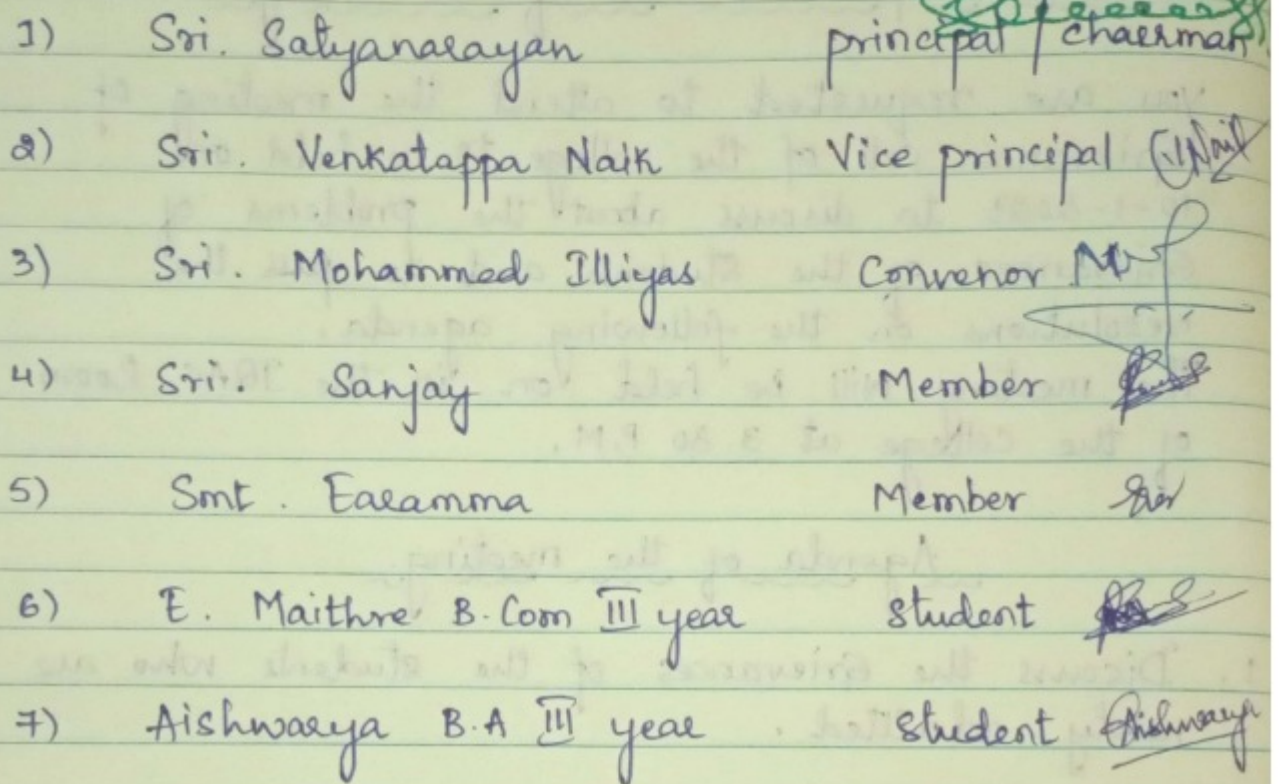 1) Sri. Satyanarayan principal / chairman
2) Sri. Venkatappa Naik Vice principal Naik
3) Sri. Mohammed Illiyas Convenor
4) Sri. Sanjay Member
5) Smt. Earamma Member
6) E. Maithre B.Com III year Student
7) Aishwarya B.A III year Student Aishwarya